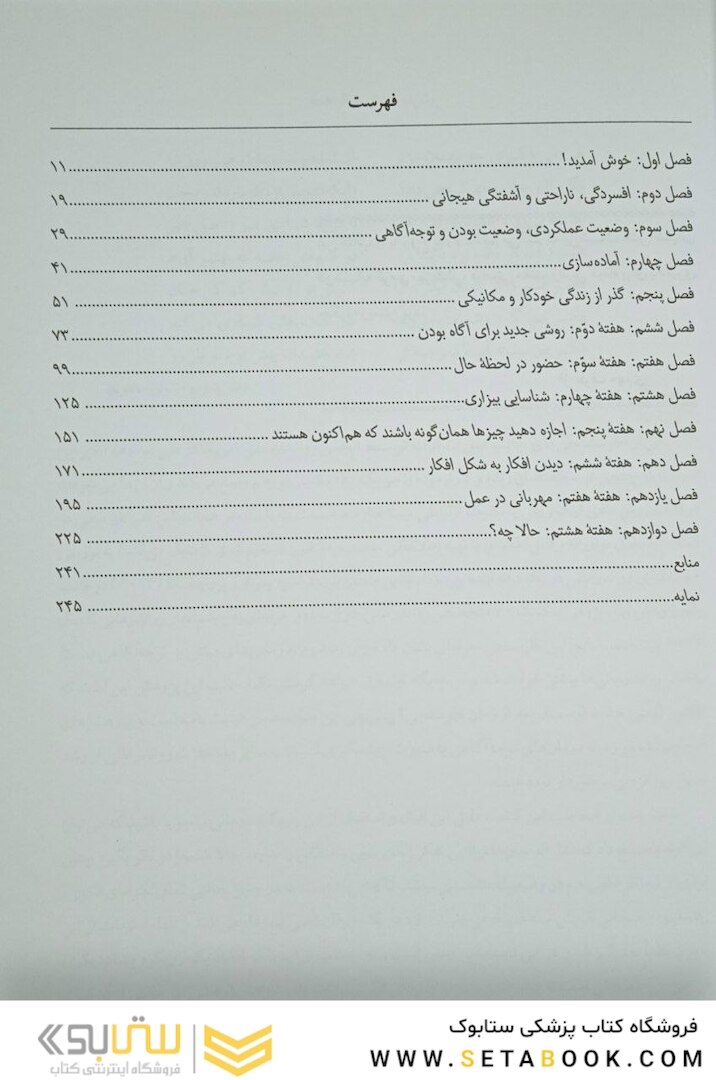 فهرست
فصل اول: خوش آمدید!...........۱۱
فصل دوم: افسردگی، ناراحتی و آشفتگی هیجانی...........۱۹
فصل سوم: وضعیت عملکردی، وضعیت بودن و توجه‌آگاهی...........۲۹
فصل چهارم: آماده‌سازی...........۴۱
فصل پنجم: گذر از زندگی خودکار و مکانیکی...........۵۱
فصل ششم: هفتهٔ دوّم: روشی جدید برای آگاه بودن...........۷۳
فصل هفتم: هفتهٔ سوّم: حضور در لحظهٔ حال...........۹۹
فصل هشتم: هفتهٔ چهارم: شناسایی بیزاری...........۱۲۵
فصل نهم: هفتهٔ پنجم: اجازه دهید چیزها همان‌گونه باشند که هم‌اکنون هستند...........۱۵۱
فصل دهم: هفتهٔ ششم: دیدن افکار به شکل افکار...........۱۷۱
فصل یازدهم: هفتهٔ هفتم: مهربانی در عمل...........۱۹۵
فصل دوازدهم: هفتهٔ هشتم: حالا چه؟...........۲۲۵
منابع...........۲۴۱
نمایه...........۲۴۵
فروشگاه کتاب پزشکی ستابوک
WWW.SETABOOK.COM
ستابوک
فروشگاه اینترنتی کتاب